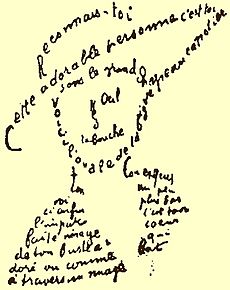 Reconnais-toi
Cette adorable personne c'est toi
sous le grand chapeau canotier
Œil
Nez
la bouche
Voici l'ovale de ta figure
ton
Cou exquis
voi
ci enfin
l'impar
faite image
de ton buste a
doré vu comme
à travers un nuage
un peu
plus bas
c'est ton
cœur
qui
bat